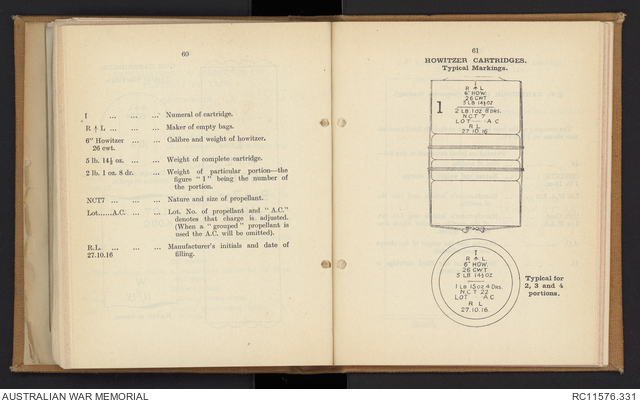 60
I ... ... ... Numeral of cartridge.
R ↑ L ... ... ... Maker of empty bags.
6" Howitzer ... ... Calibre and weight of howitzer.
26 cwt.
5 lb. 14½ oz. ... ... Weight of complete cartridge.
2 lb. 1 oz. 8 dr. ... ... Weight of particular portion—the
figure "1" being the number of
the portion.
NCT7 ... ... ... Nature and size of propellant.
Lot......A.C. ... ... Lot. No. of propellant and "A.C."
denotes that charge is adjusted.
(When a "grouped" propellant is
used the A.C. will be omitted).
R.L. ... ... ... Manufacturer's initials and date of
27.10.16 filling.
61
HOWITZER CARTRIDGES.
Typical Markings.
1
R ↑ L
6" HOW.
26 CWT
5 LB 14½ OZ
2 LB. 1 OZ 8 DRS.
NCT 7
LOT A C
R L
27.10.16
I
R ↑ L
6" HOW.
26 CWT
5 LB 14½ OZ
1 LB 15 OZ 4 DRS.
NCT 22
LOT A C
R L
27.10.16.
Typical for
2, 3 and 4
portions.
AUSTRALIAN WAR MEMORIAL
RC11576.331